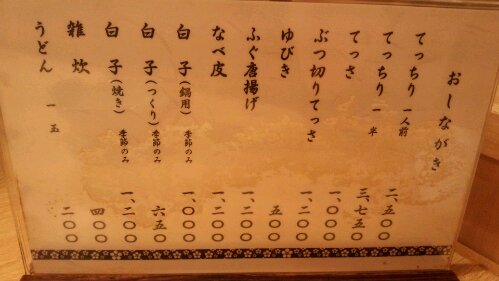 おしながき
てっちり 一人前 二、五〇〇
てっちり 一半 三、七五〇
てっさ 一、〇〇〇
ぶつ切りてっさ 一、二〇〇
ゆびき 五〇〇
ふぐ唐揚げ 一、二〇〇
なべ皮 一、二〇〇
白子(鍋用) 季節のみ 一、〇〇〇
白子(つくり) 季節のみ 六五〇
白子(焼き) 季節のみ 一、二〇〇
雑炊 四〇〇
うどん 一玉 二〇〇